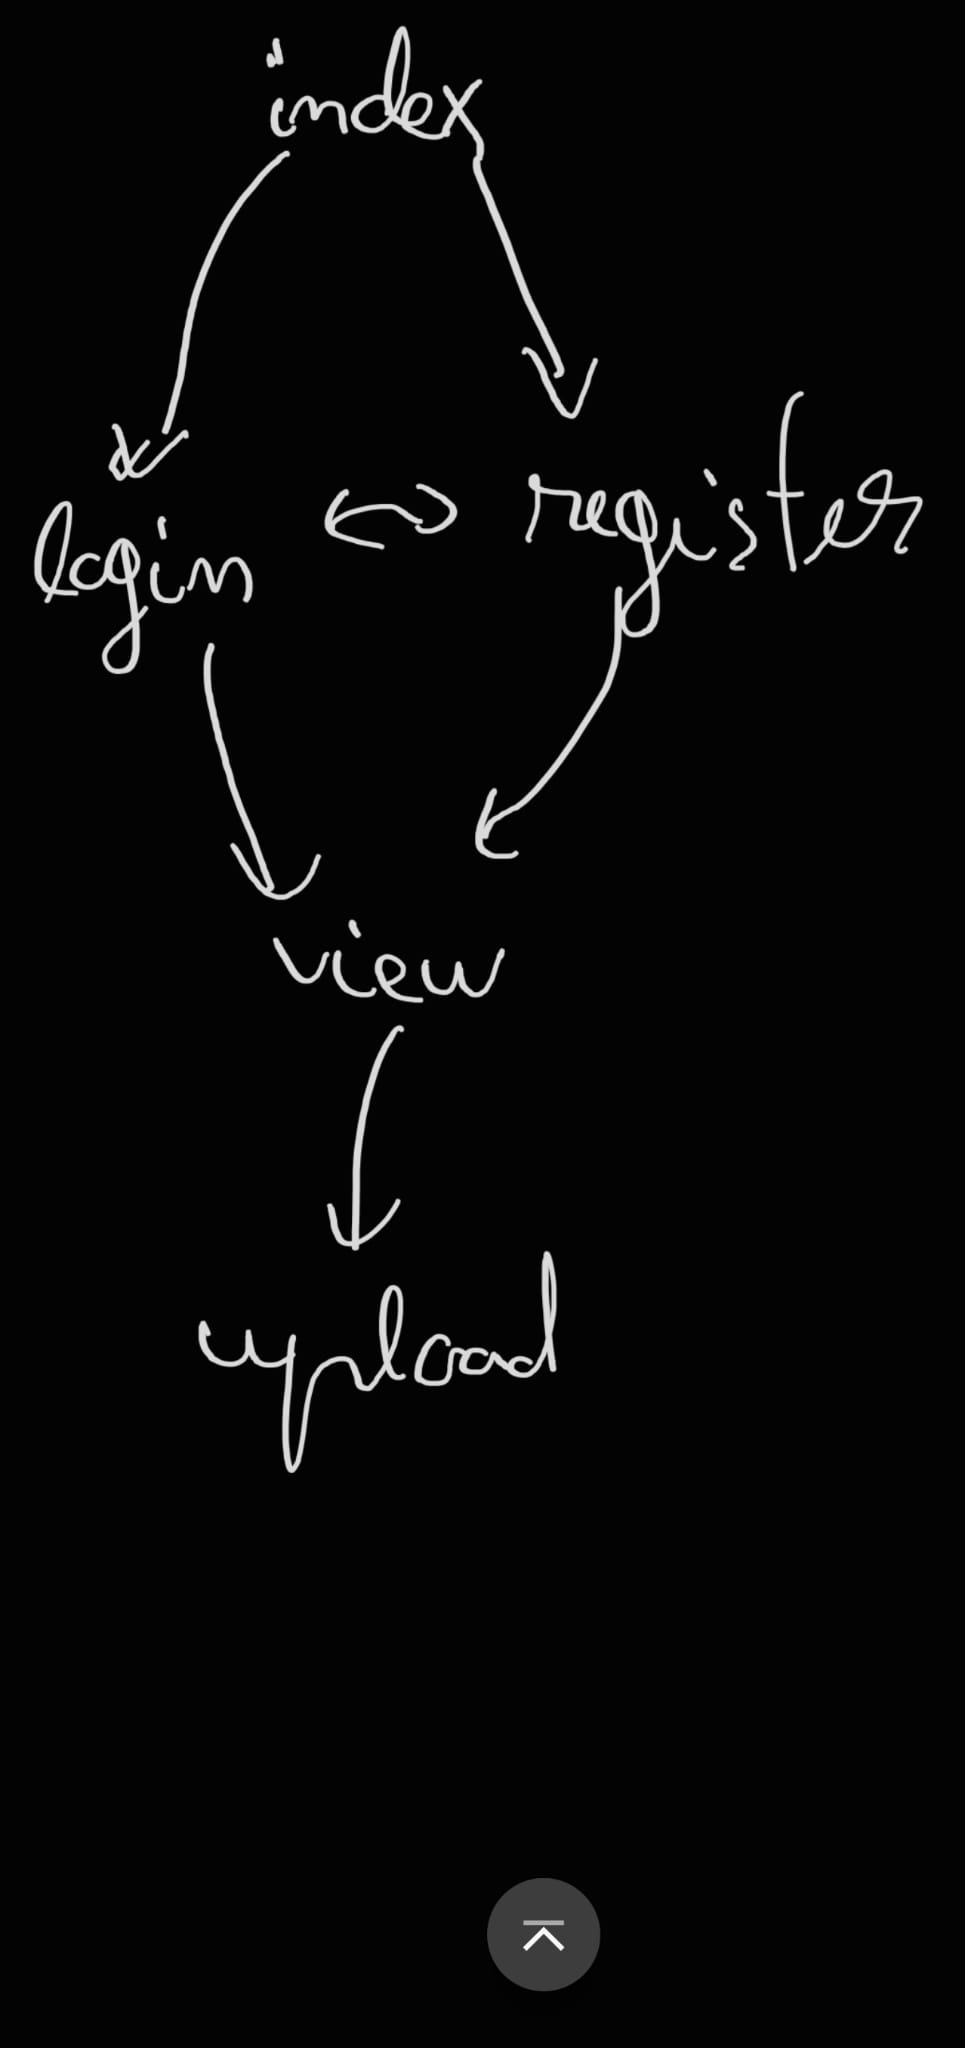 index
login ↔ register
view
upload